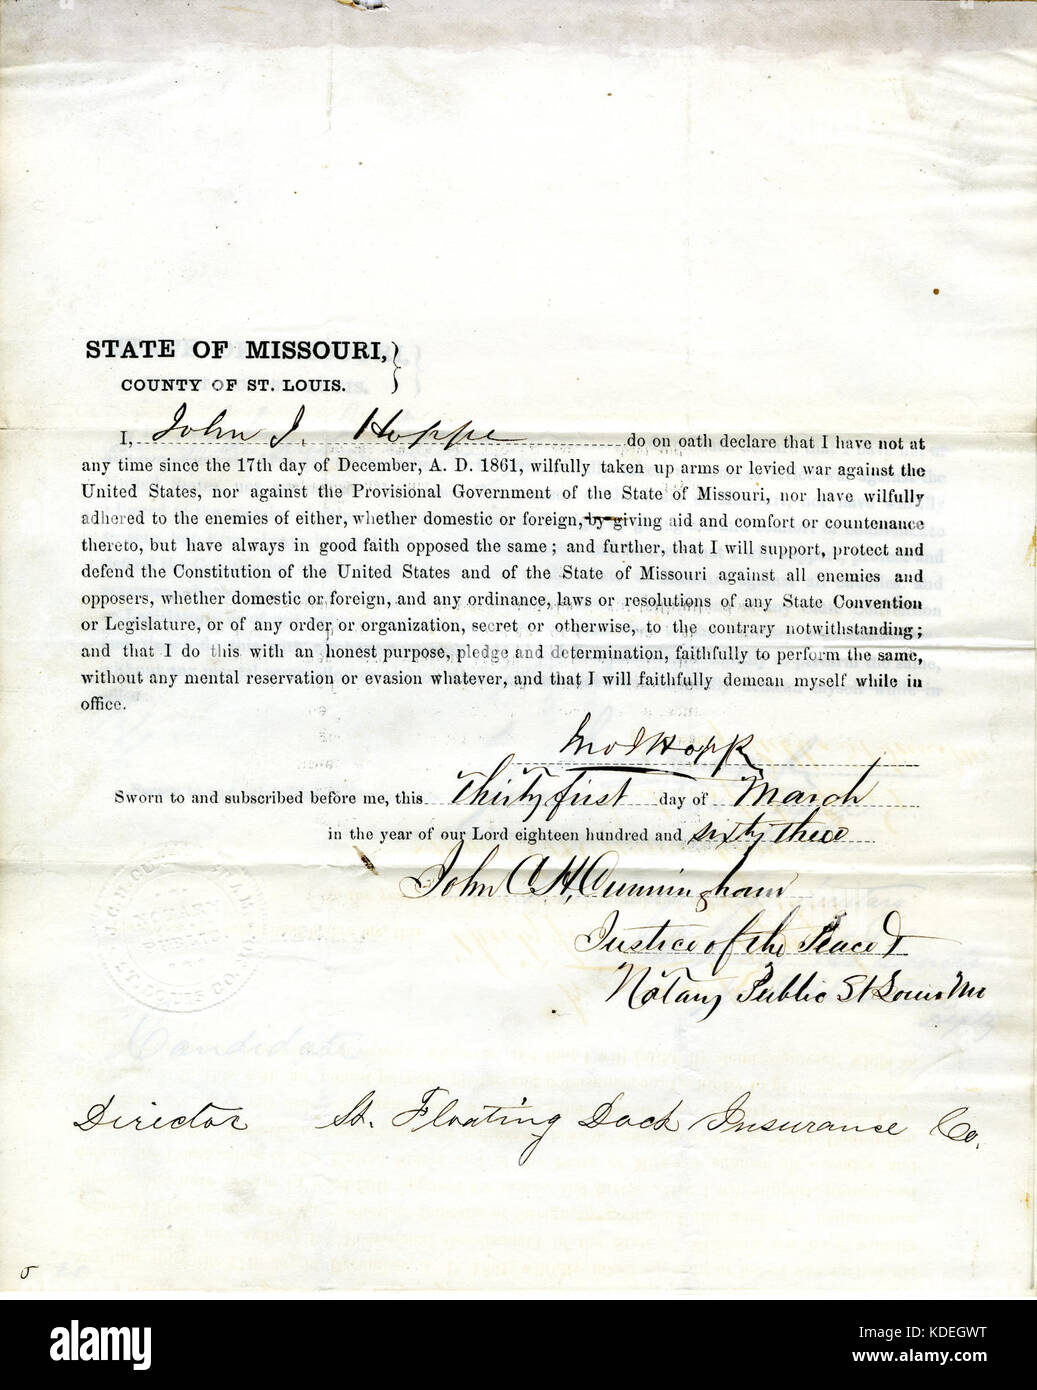 STATE OF MISSOURI,
COUNTY OF ST. LOUIS.
I, John J. Hoppe do on oath declare that I have not at
any time since the 17th day of December, A. D. 1861, wilfully taken up arms or levied war against the
United States, nor against the Provisional Government of the State of Missouri, nor have wilfully
adhered to the enemies of either, whether domestic or foreign, by giving aid and comfort or countenance
thereto, but have always in good faith opposed the same; and further, that I will support, protect and
defend the Constitution of the United States and of the State of Missouri against all enemies and
opposers, whether domestic or foreign, and any ordinance, laws or resolutions of any State Convention
or Legislature, or of any order or organization, secret or otherwise, to the contrary notwithstanding;
and that I do this with an honest purpose, pledge and determination, faithfully to perform the same,
without any mental reservation or evasion whatever, and that I will faithfully demean myself while in
office.
Jno J Hoppe
Sworn to and subscribed before me, this Thirty first day of March
in the year of our Lord eighteen hundred and sixty three
John C. H. Cunningham
Justice of the Peace &
Notary Public St Louis Mo
NOTARY
PUBLIC
ST. LOUIS CO.
Candidate
Director St. Floating Dock Insurance Co.
5
alamy
Image ID: KDEGWT
www.alamy.com